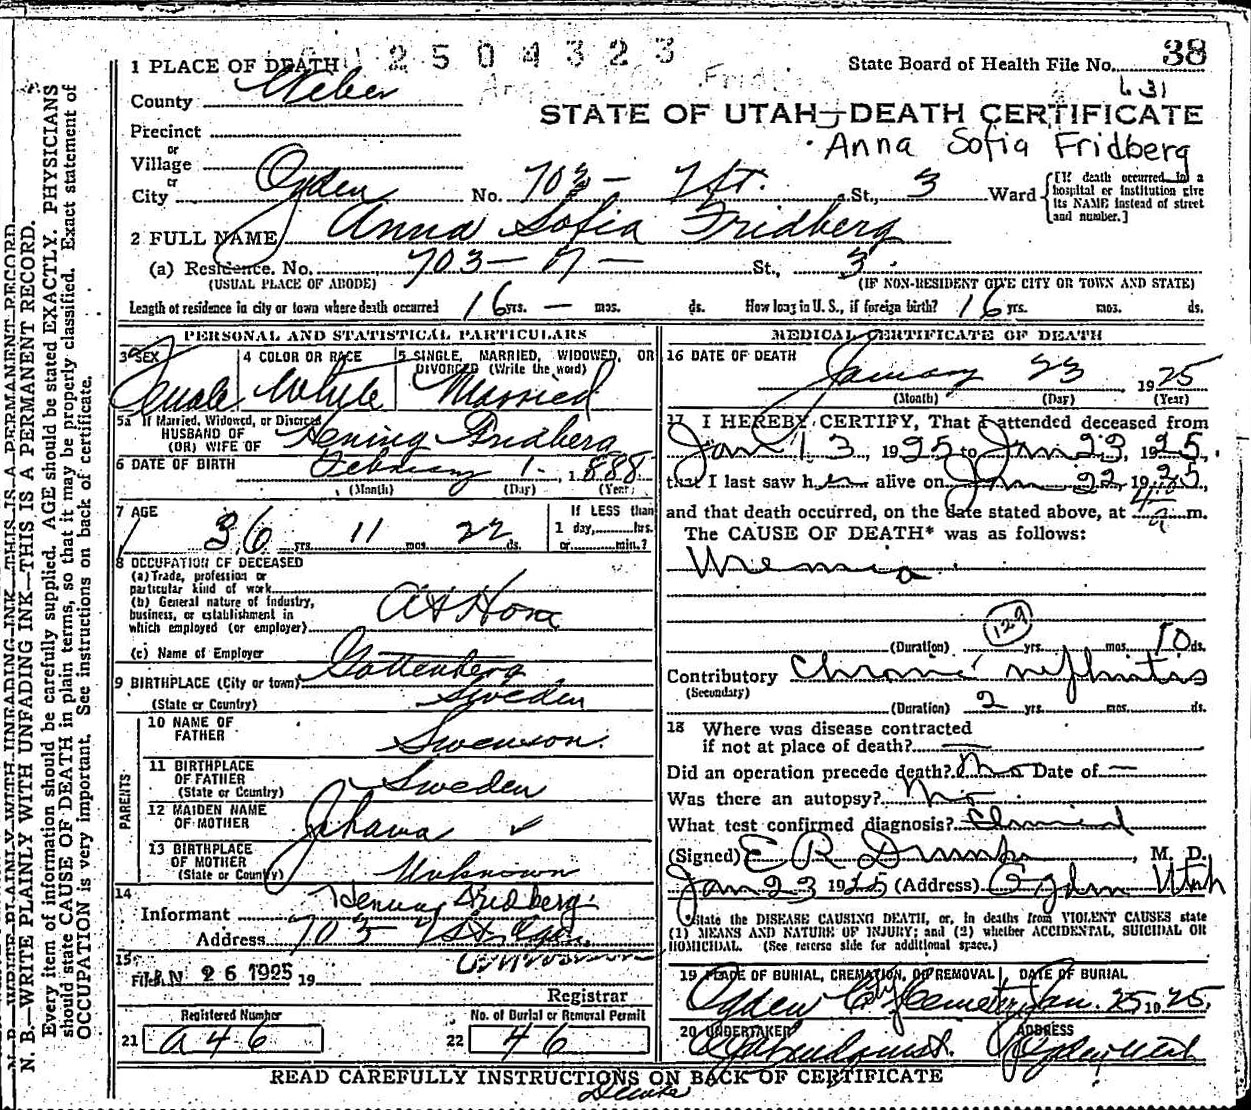 2504323
38
1 PLACE OF DEATH
State Board of Health File No.
County Weber
631
STATE OF UTAH—DEATH CERTIFICATE
Precinct
Anna Sofia Fridberg
or
Village
or
City Ogden No. 703 - 7 St. St., 3 Ward
[If death occurred in a hospital or institution give its NAME instead of street and number.]
2 FULL NAME Anna Sofia Fridberg
(a) Residence. No. 703 - 7 - St., 3.
(USUAL PLACE OF ABODE) (IF NON-RESIDENT GIVE CITY OR TOWN AND STATE)
Length of residence in city or town where death occurred 16 yrs. — mos. ds. How long in U. S., if foreign birth? 16 yrs. mos. ds.
PERSONAL AND STATISTICAL PARTICULARS
3 SEX 4 COLOR OR RACE 5 SINGLE, MARRIED, WIDOWED, OR DIVORCED (Write the word)
Female White Married
5a If Married, Widowed, or Divorced
HUSBAND OF
(OR) WIFE OF Hening Fridberg
6 DATE OF BIRTH February 1 - 1888
(Month) (Day) (Year)
7 AGE If LESS than
36 yrs. 11 mos. 22 ds. 1 day, hrs.
or min.?
8 OCCUPATION OF DECEASED
(a) Trade, profession or
particular kind of work
(b) General nature of industry,
business, or establishment in
which employed (or employer) At Home
(c) Name of Employer
9 BIRTHPLACE (City or town) Gottenberg
(State or Country) Sweden
PARENTS
10 NAME OF
FATHER Swenson.
11 BIRTHPLACE
OF FATHER
(State or Country) Sweden
12 MAIDEN NAME
OF MOTHER Johana
13 BIRTHPLACE
OF MOTHER
(State or County) Unknown
14
Informant Fridberg
Address 703 - 7 St
15
Filed JAN 26 1925 19
Registrar
Registered Number No. of Burial or Removal Permit
21 a 46 22 46
MEDICAL CERTIFICATE OF DEATH
16 DATE OF DEATH
January 23 1925
(Month) (Day) (Year)
17 I HEREBY CERTIFY, That I attended deceased from
Jan 13, 1925 to Jan 23, 1925.
that I last saw her alive on Jan 22, 1925,
and that death occurred, on the date stated above, at 4 a m.
The CAUSE OF DEATH* was as follows:
Uremia
129
(Duration) yrs. mos. 10 ds.
Contributory Chronic nephritis
(Secondary)
(Duration) 2 yrs. mos. ds.
18 Where was disease contracted
if not at place of death? —
Did an operation precede death? No Date of —
Was there an autopsy? No
What test confirmed diagnosis? Clinical
(Signed) E R Dumke, M. D.
Jan 23 1925 (Address) Ogden Utah
*State the DISEASE CAUSING DEATH, or, in deaths from VIOLENT CAUSES state
(1) MEANS AND NATURE OF INJURY; and (2) whether ACCIDENTAL, SUICIDAL OR
HOMICIDAL. (See reverse side for additional space.)
19 PLACE OF BURIAL, CREMATION, OR REMOVAL DATE OF BURIAL
Ogden City Cemetery Jan. 25 1925.
20 UNDERTAKER ADDRESS
Ogden Utah
READ CAREFULLY INSTRUCTIONS ON BACK OF CERTIFICATE
Dumke
N. B.—WRITE PLAINLY WITH UNFADING INK—THIS IS A PERMANENT RECORD.
Every item of information should be carefully supplied. AGE should be stated EXACTLY. PHYSICIANS
should state CAUSE OF DEATH in plain terms, so that it may be properly classified. Exact statement of
OCCUPATION is very important. See instructions on back of certificate.